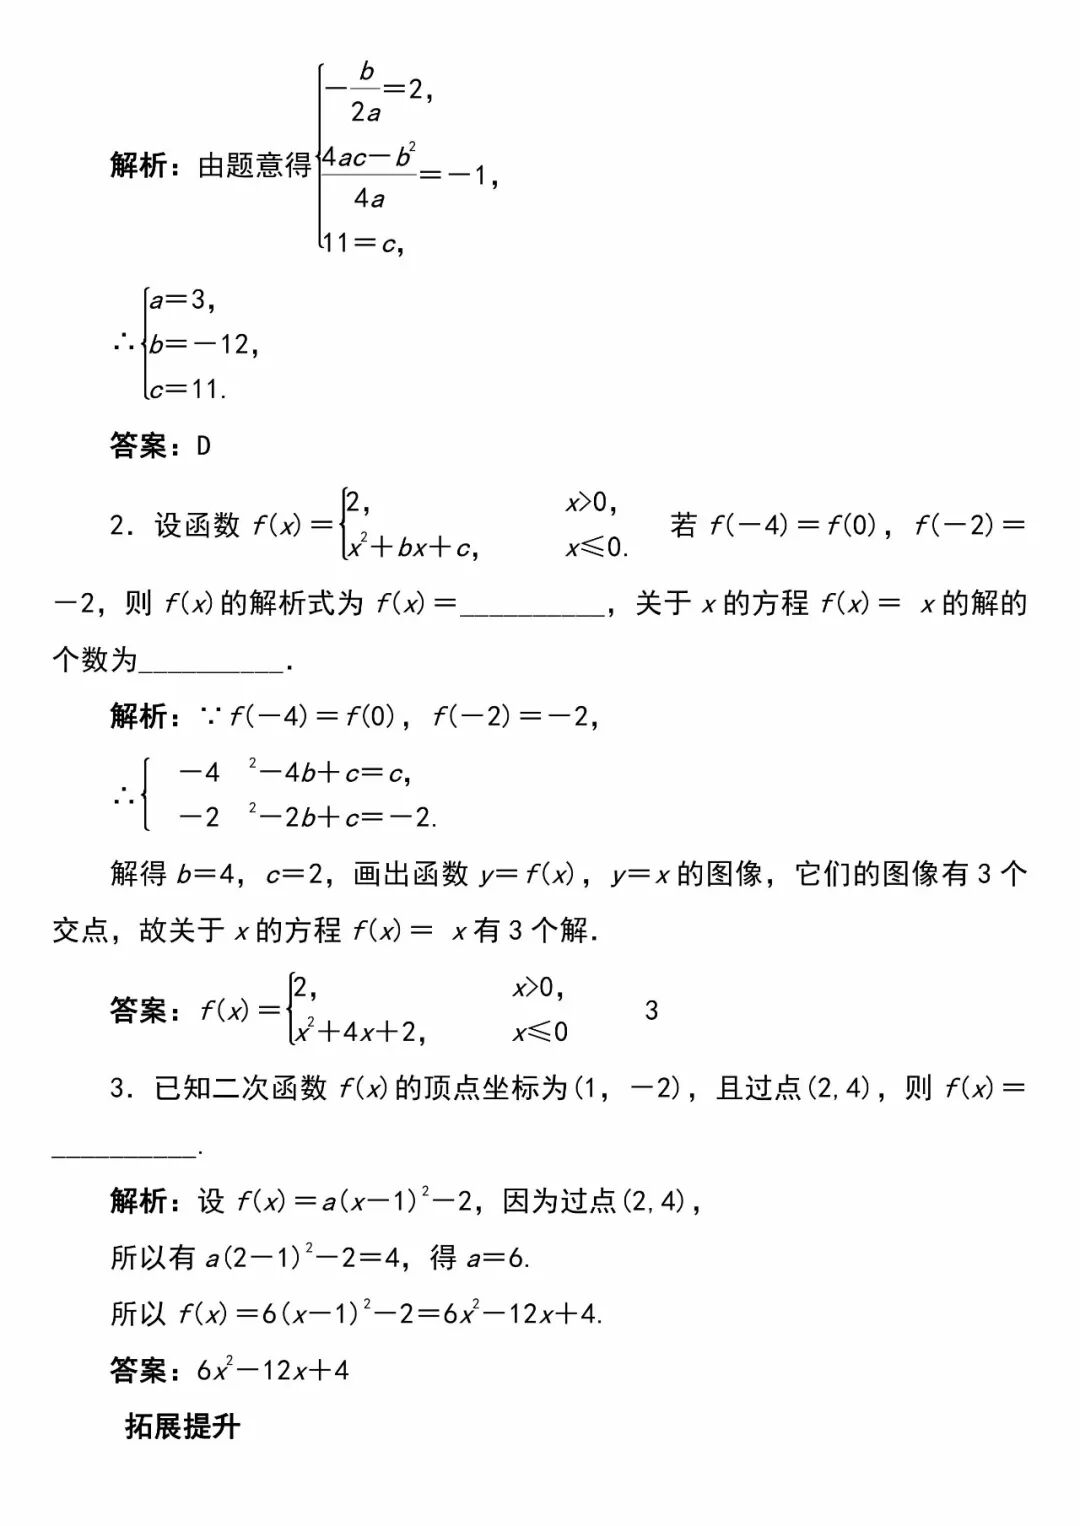 解析：由题意得{-b/2a=2，
4ac-b²/4a=-1，
11=c，
∴{a=3，
b=-12，
c=11.
答案：D
2．设函数 f(x)={2，　x>0，
x²+bx+c，　x≤0.　若 f(-4)=f(0)，f(-2)=
-2，则 f(x)的解析式为 f(x)=__________，关于 x 的方程 f(x)= x 的解的
个数为__________．
解析：∵f(-4)=f(0)，f(-2)=-2，
∴{-4 ²-4b+c=c，
-2 ²-2b+c=-2.
解得 b=4，c=2，画出函数 y=f(x)，y=x 的图像，它们的图像有 3 个
交点，故关于 x 的方程 f(x)= x 有 3 个解．
答案：f(x)={2，　x>0，
x²+4x+2，　x≤0　3
3．已知二次函数 f(x)的顶点坐标为(1，-2)，且过点(2,4)，则 f(x)=
__________.
解析：设 f(x)=a(x-1)²-2，因为过点(2,4)，
所以有 a(2-1)²-2=4，得 a=6.
所以 f(x)=6(x-1)²-2=6x²-12x+4.
答案：6x²-12x+4
拓展提升